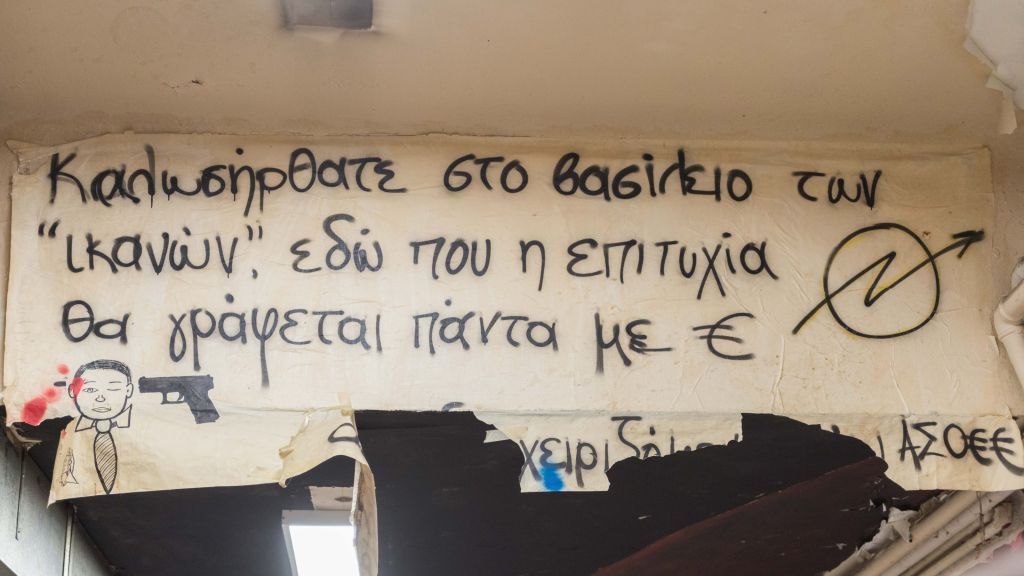 Καλωσήρθατε στο βασίλειο των
"ικανών", εδώ που η επιτυχία
θα γράφεται πάντα με €
ΑΣΟΕΕ